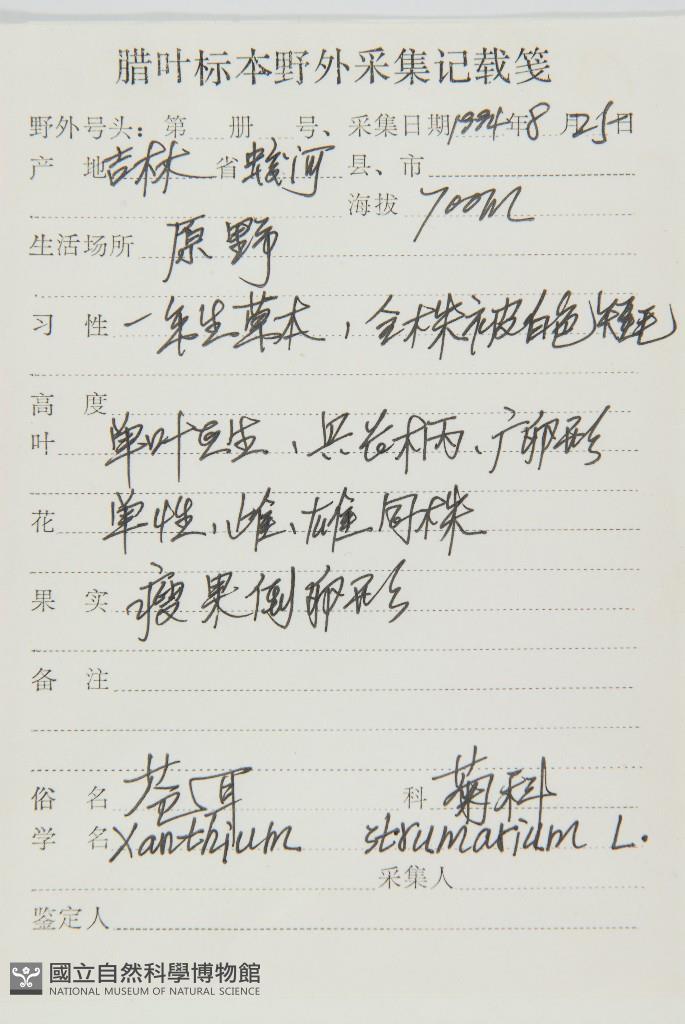 腊叶标本野外采集记载笺
野外号头：第 册 号、采集日期1994年8月25日
产 地吉林 省蛟河 县、市
海拔 700m
生活场所 原野
习 性 一年生草本，全株被白色短毛
高 度
叶 单叶互生、具长柄、广卵形
花 单性、雌、雄同株
果 实 瘦果倒卵形
备 注
俗 名 苍耳 科 菊科
学 名 Xanthium strumarium L.
采集人
鉴定人
國立自然科學博物館
NATIONAL MUSEUM OF NATURAL SCIENCE